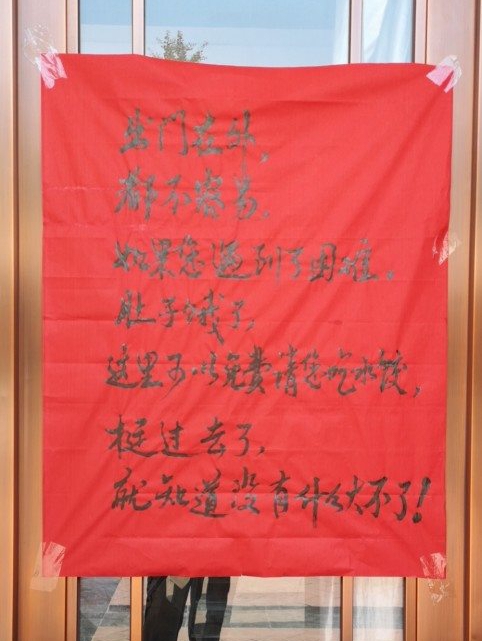 出门在外，
都不容易。
如果您遇到了困难。
肚子饿了，
这里可以免费请您吃水饺，
挺过去了，
就知道没有什么大不了！